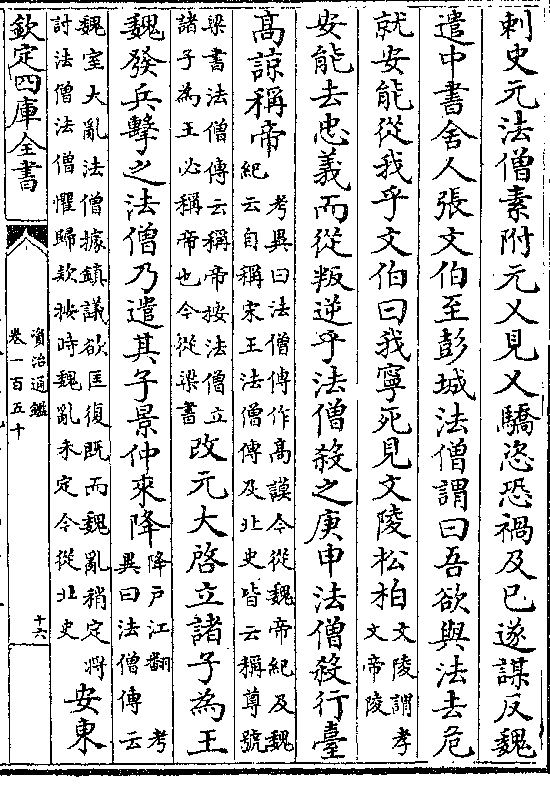 刺史元法僧素附元乂見乂驕恣恐禍及已遂謀反魏
遣中書舍人張文伯至彭城法僧謂曰吾欲與法去危
就安能從我乎文伯曰我寧死見文陵松柏文陵謂孝文帝陵
安能去忠義而從叛逆乎法僧殺之庚申法僧殺行臺
高諒稱帝考異曰法僧傳作高謨今從魏帝紀及魏紀云自稱宋王法僧傳及北史皆云稱尊號
梁書法僧傳云稱帝按法僧立諸子為王必稱帝也今從梁書改元大啓立諸子為王
魏發兵擊之法僧乃遣其子景仲來降降戶江翻考異曰法僧傳云
魏室大亂法僧據鎮議欲匡復既而魏亂稍定將討法僧法僧懼歸欵按時魏亂未定今從北史安東
欽定四庫全書
資治通鑑
卷一百五十
十六